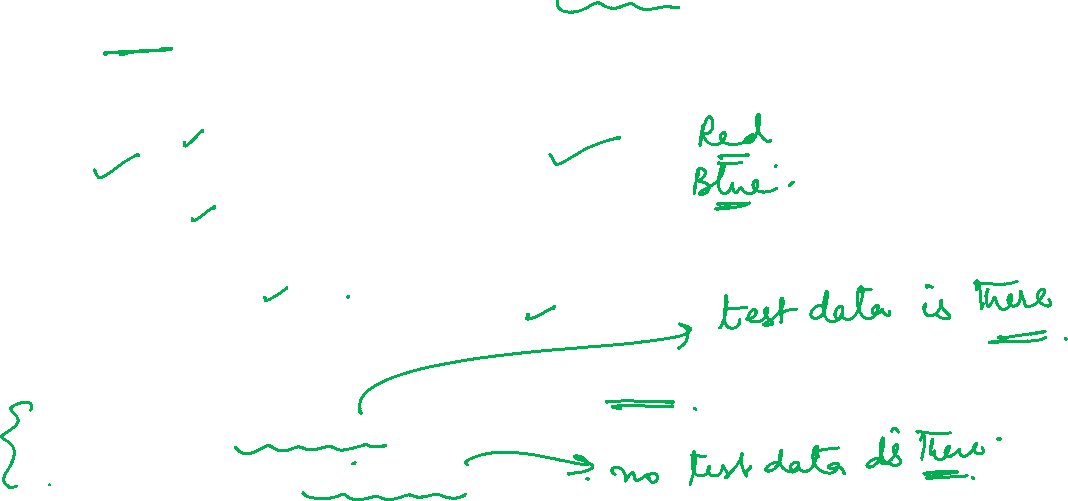 Red
Blue.
test data is There.
no test data is There.